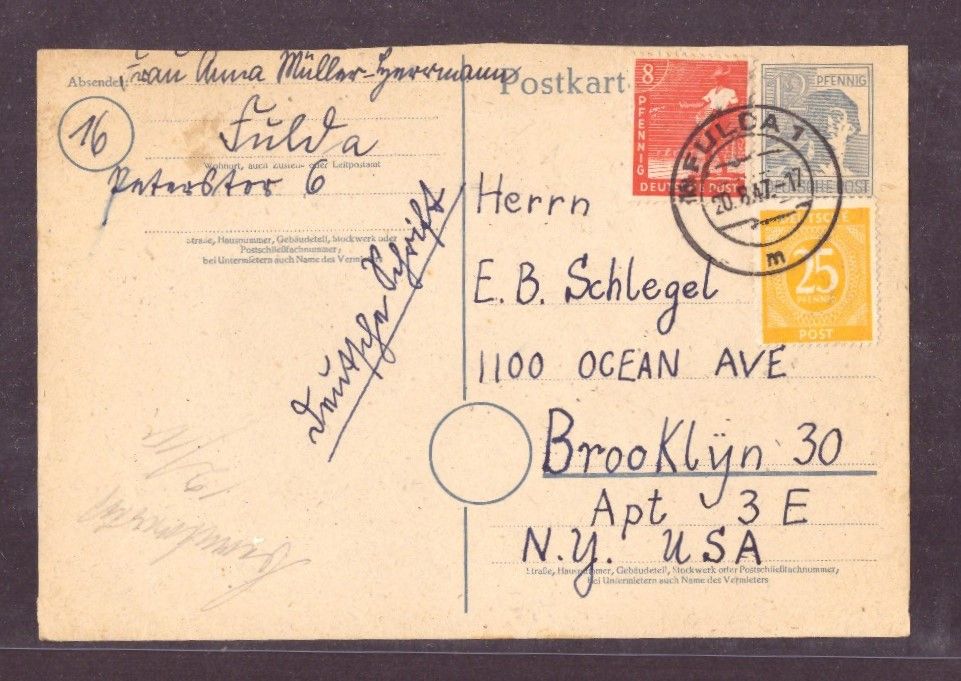 Absender:
Frau Anna Müller-Herrmann
16
Fulda
Wohnort, auch Zustell- oder Leitpostamt
Peterstor 6
Straße, Hausnummer, Gebäudeteil, Stockwerk oder
Postschließfachnummer;
bei Untermietern auch Name des Vermieters
Deutsche Schrift
Postkart
8
PFENNIG
DEUTSCHE POST
12 PFENNIG
DEUTSCHE POST
16 FULDA 1
20.8.47.-17
m
DEUTSCHE
25
PFENNIG
POST
Herrn
E. B. Schlegel
1100 OCEAN AVE
Brooklÿn 30
Apt 3 E
N.Y. USA
Straße, Hausnummer, Gebäudeteil, Stockwerk oder Postschließfachnummer;
bei Untermietern auch Name des Vermieters